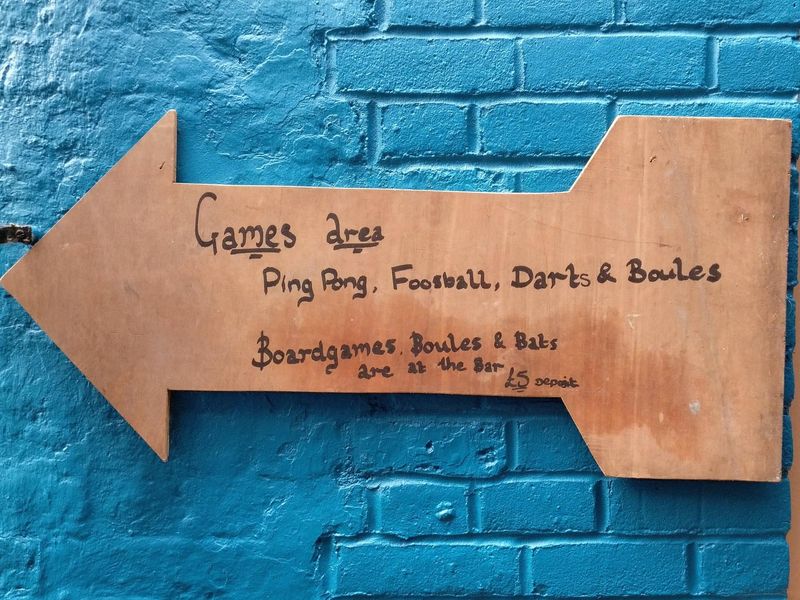 Games area
Ping Pong, Foosball, Darts & Boules
Boardgames, Boules & Bats
are at the Bar
£5 Deposit